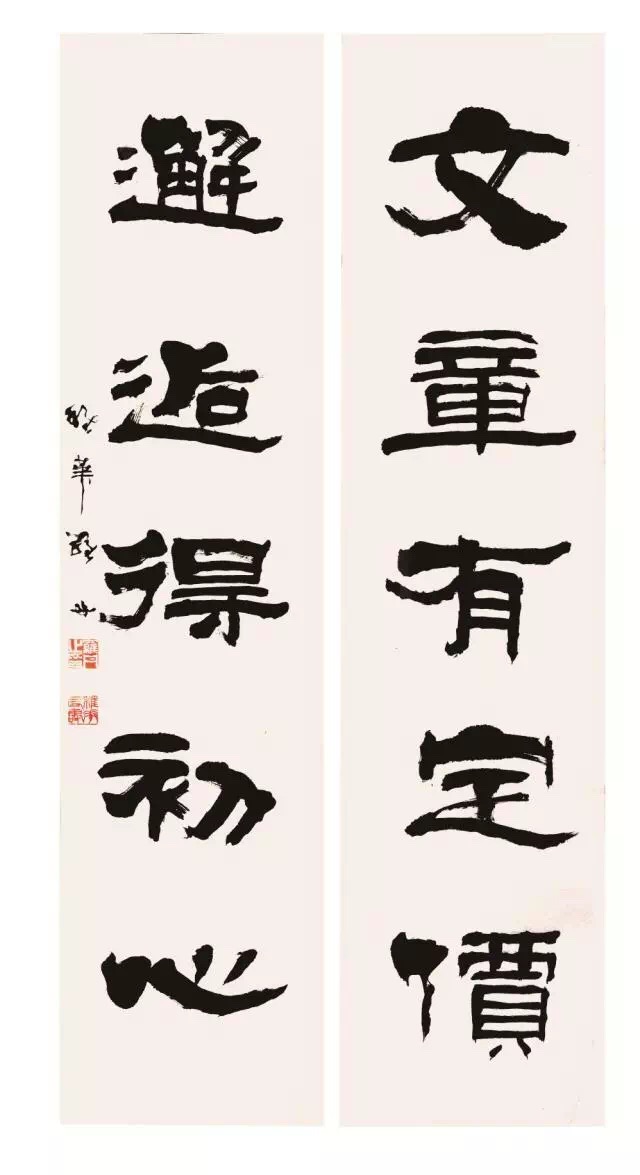 文章有定價
邂逅得初心